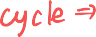 cycle ⇒